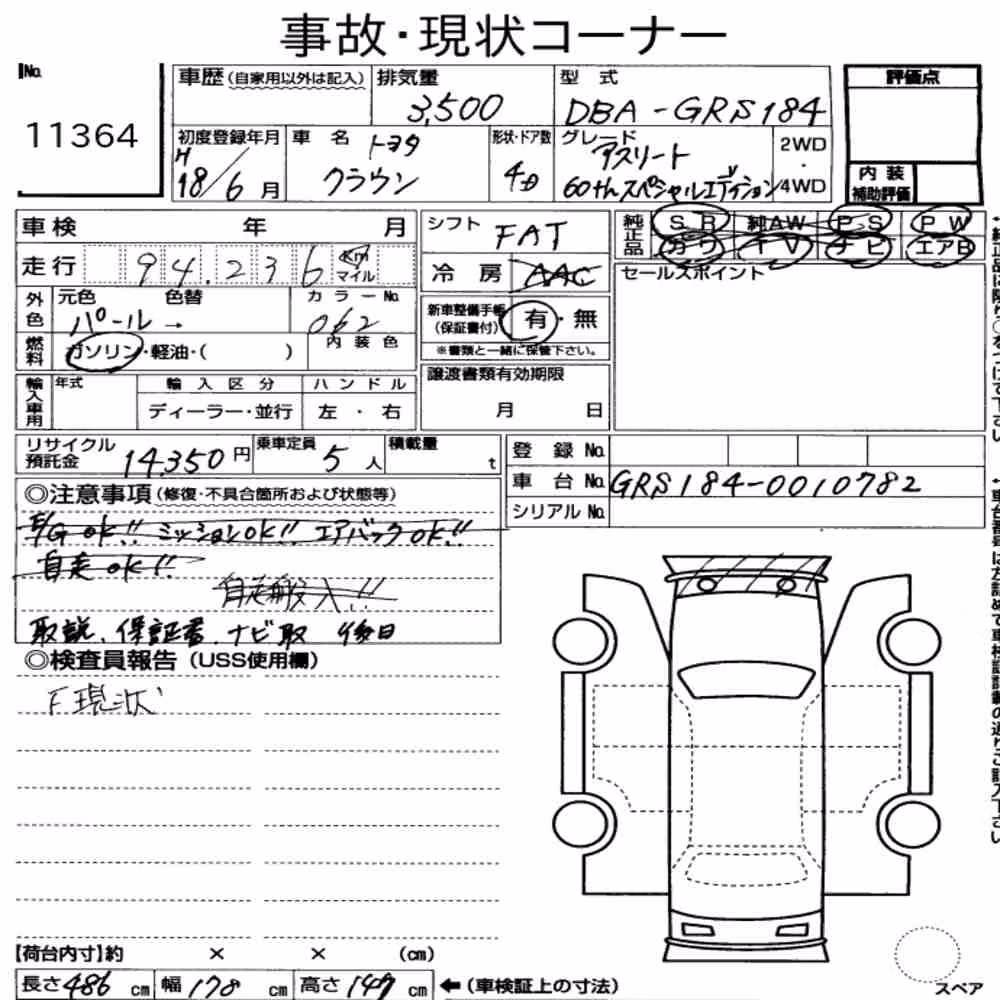 事故・現状コーナー
No.
11364
車歴(自家用以外は記入)
排気量
3,500
型 式
DBA-GRS184
評価点
初度登録年月
H
18/6月
車 名
トヨタ
クラウン
形状・ドア数
4D
グレード
アスリート
60thスペシャルエディション
2WD
・
4WD
内 装
補助評価
車検 年 月
シフト
FAT
純正品
SR 純AW PS PW
カワ TV ナビ エアB
走行 94.236 Km
マイル
冷 房 AAC
セールスポイント
外色
元色 色替
パール→
カラーNo.
062
新車整備手帳
(保証書付)
有・無
※書類と一緒に保管下さい。
燃料
ガソリン・軽油・( )
内 装 色
輸入車用
年式
輸 入 区 分
ハ ン ド ル
ディーラー・並行
左 ・ 右
譲渡書類有効期限
月 日
リサイクル
預託金 14,350円
乗車定員
5人
積載量
t
登 録 No.
車 台 No. GRS184-0010782
シリアルNo.
◎注意事項(修復・不具合箇所および状態等)
E/G OK!! ミッションOK!! エアバックOK!!
自走OK!!
自走搬入!!
取説、保証書、ナビ取 後日
◎検査員報告(USS使用欄)
F現状
【荷台内寸】約 × × (cm)
長さ486cm 幅178cm 高さ147cm ←(車検証上の寸法)
スペア